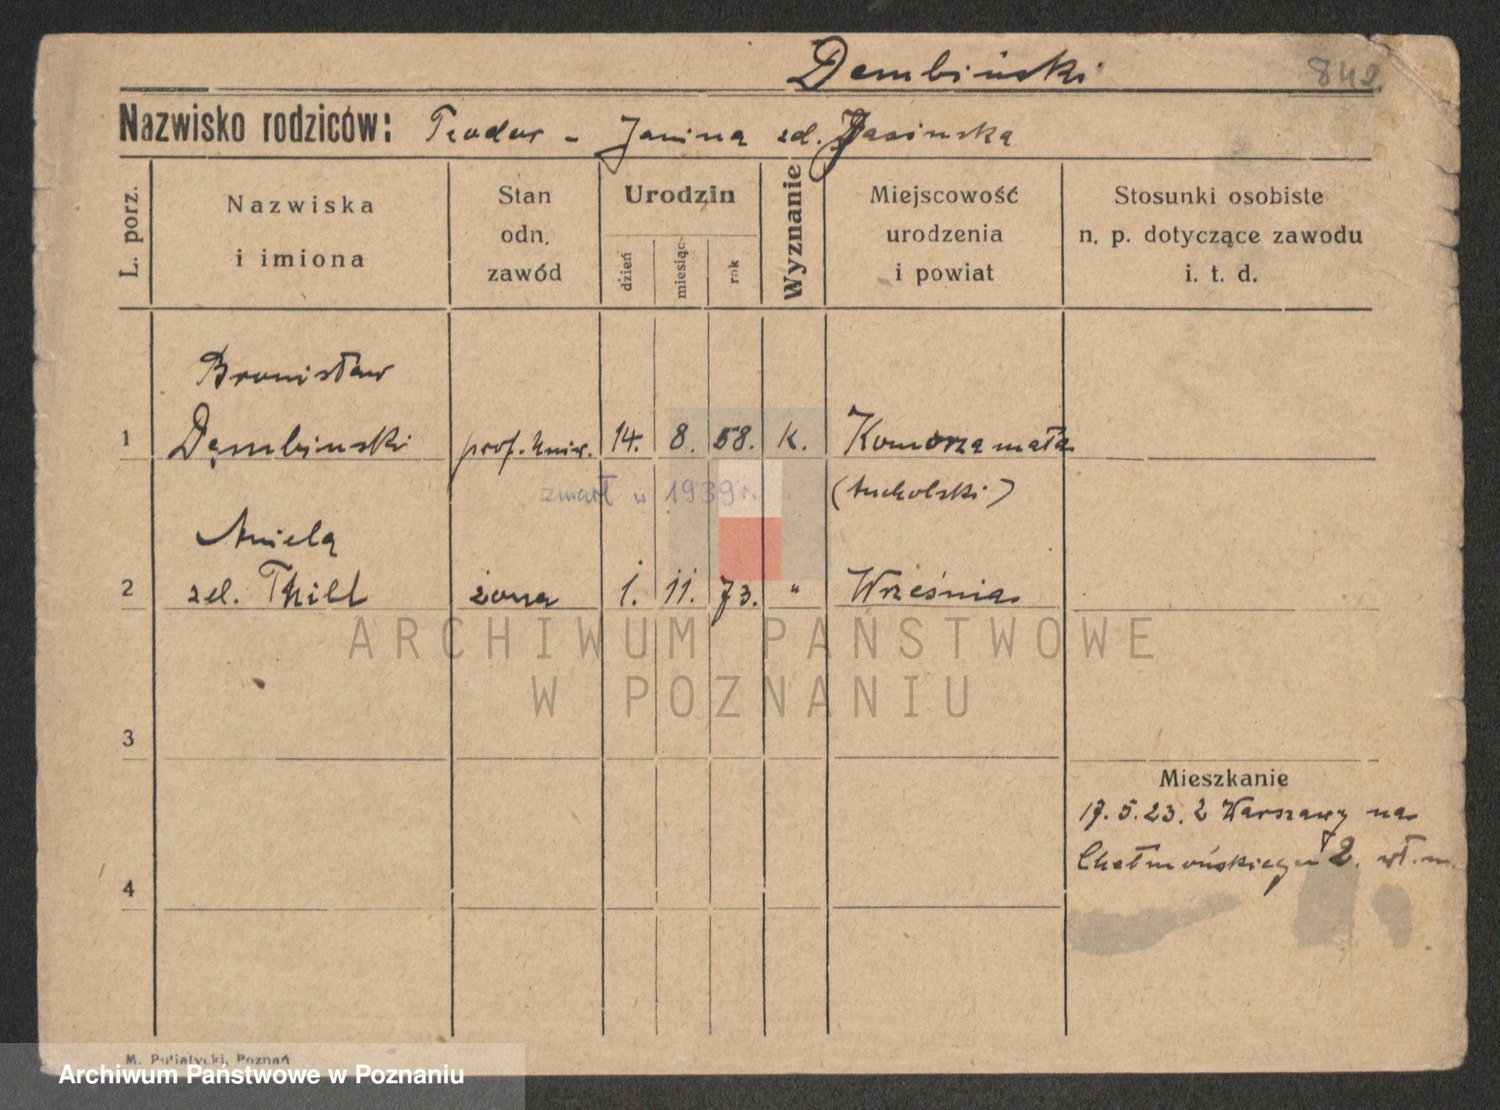 Dembiński
842.
Nazwisko rodziców: Teodor - Janina zd. Jasinska
L. porz.
Nazwiska i imiona
Stan odn. zawód
Urodzin
dzień
miesiąc
rok
Wyznanie
Miejscowość urodzenia i powiat
Stosunki osobiste n. p. dotyczące zawodu i. t. d.
Bronisław
1 Dąmbinski prof. Uniw. 14. 8. 58. K. Komorza mała
zmarł w 1939 r. (tucholski)
Aniela
2 zd. Thill żona 1. 11. 73. " Września
ARCHIWUM PAŃSTWOWE
W POZNANIU
3
Mieszkanie
17. 5. 23. z Warszawy na
Chełmońskiego 2. wł. m.
4
M. Putiatycki, Poznań
Archiwum Państwowe w Poznaniu